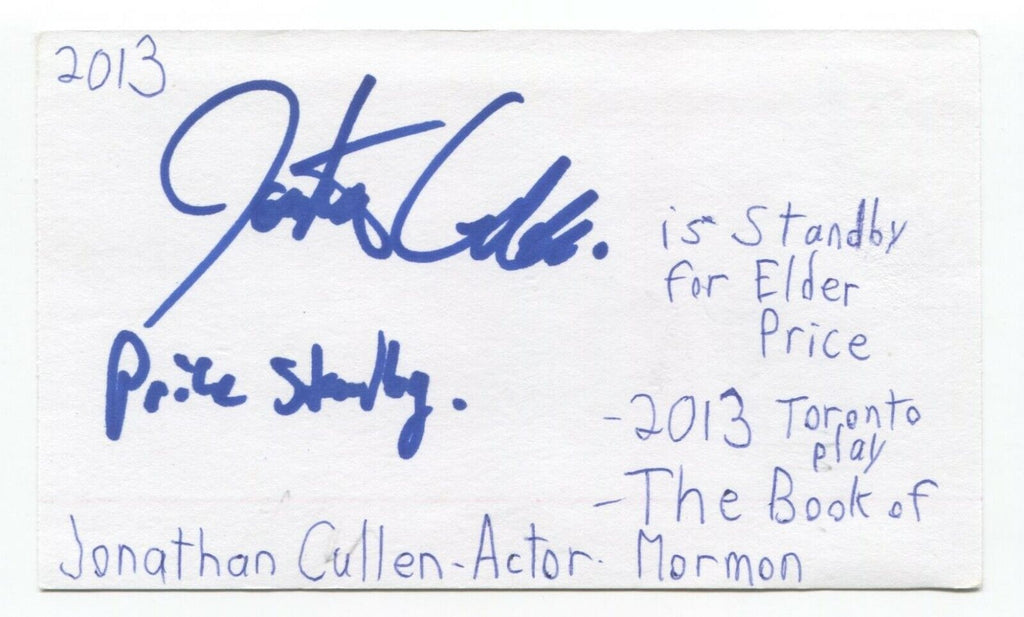 2013
Jonathan Cullen.
Price Standby.
is Standby
for Elder
Price
-2013 Toronto
play
-The Book of
Mormon
Jonathan Cullen-Actor-